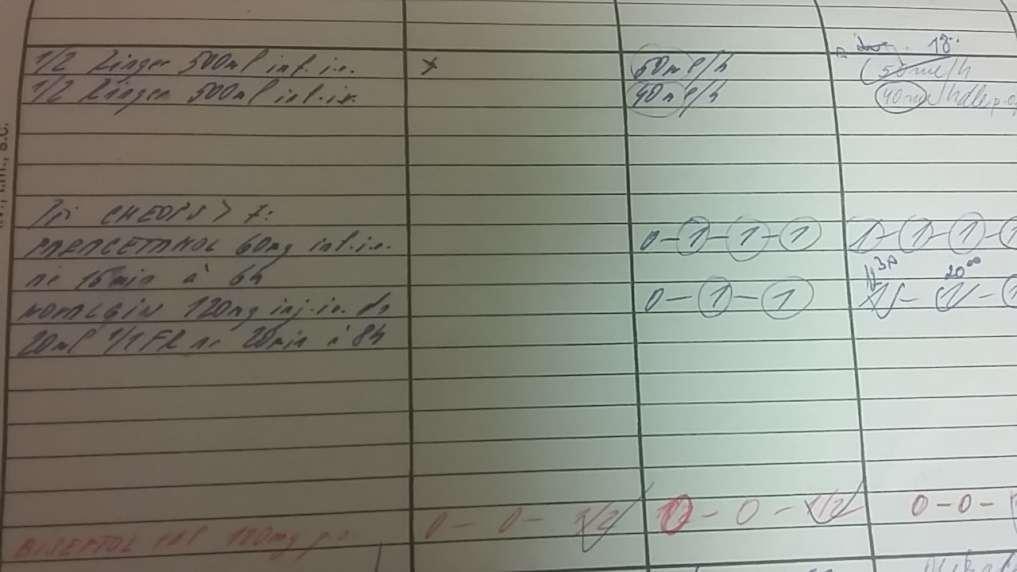 12:
1/2 Ringer 500ml inf. i.v. x 50ml/h (50ml/h
1/2 Ringer 500ml inf. i.v. 40ml/h 40ml/h dle p.o
Při CHEOPS > 7:
PARACETAMOL 60mg inf. i.v. 0-1-1-1 1-1-1-1
na 15min à 6h 20⁰⁰
NOVALGIN 120mg inj. i.v. do 0-1-1
20ml 1/1 FR na 20min à 8h
BISEPTOL 100mg p.o. 0-0-1/2 0-0-1/2 0-0-